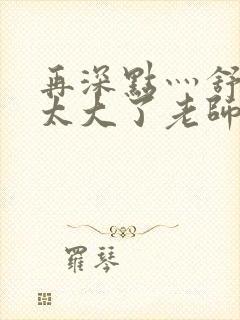 再深點灬舒
太大了老師
羅琴